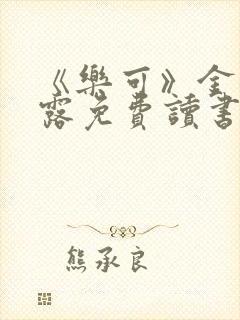 《樂可》金
露免費讀書
熊承良